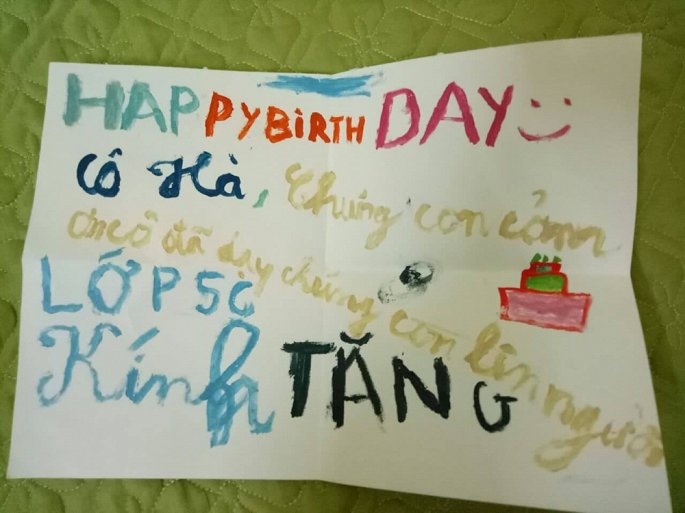 HAPPY BIRTH DAY
Cô Hà, Chúng con cảm
ơn cô đã dạy chúng con lên người
LỚP 5C
Kính TĂNG